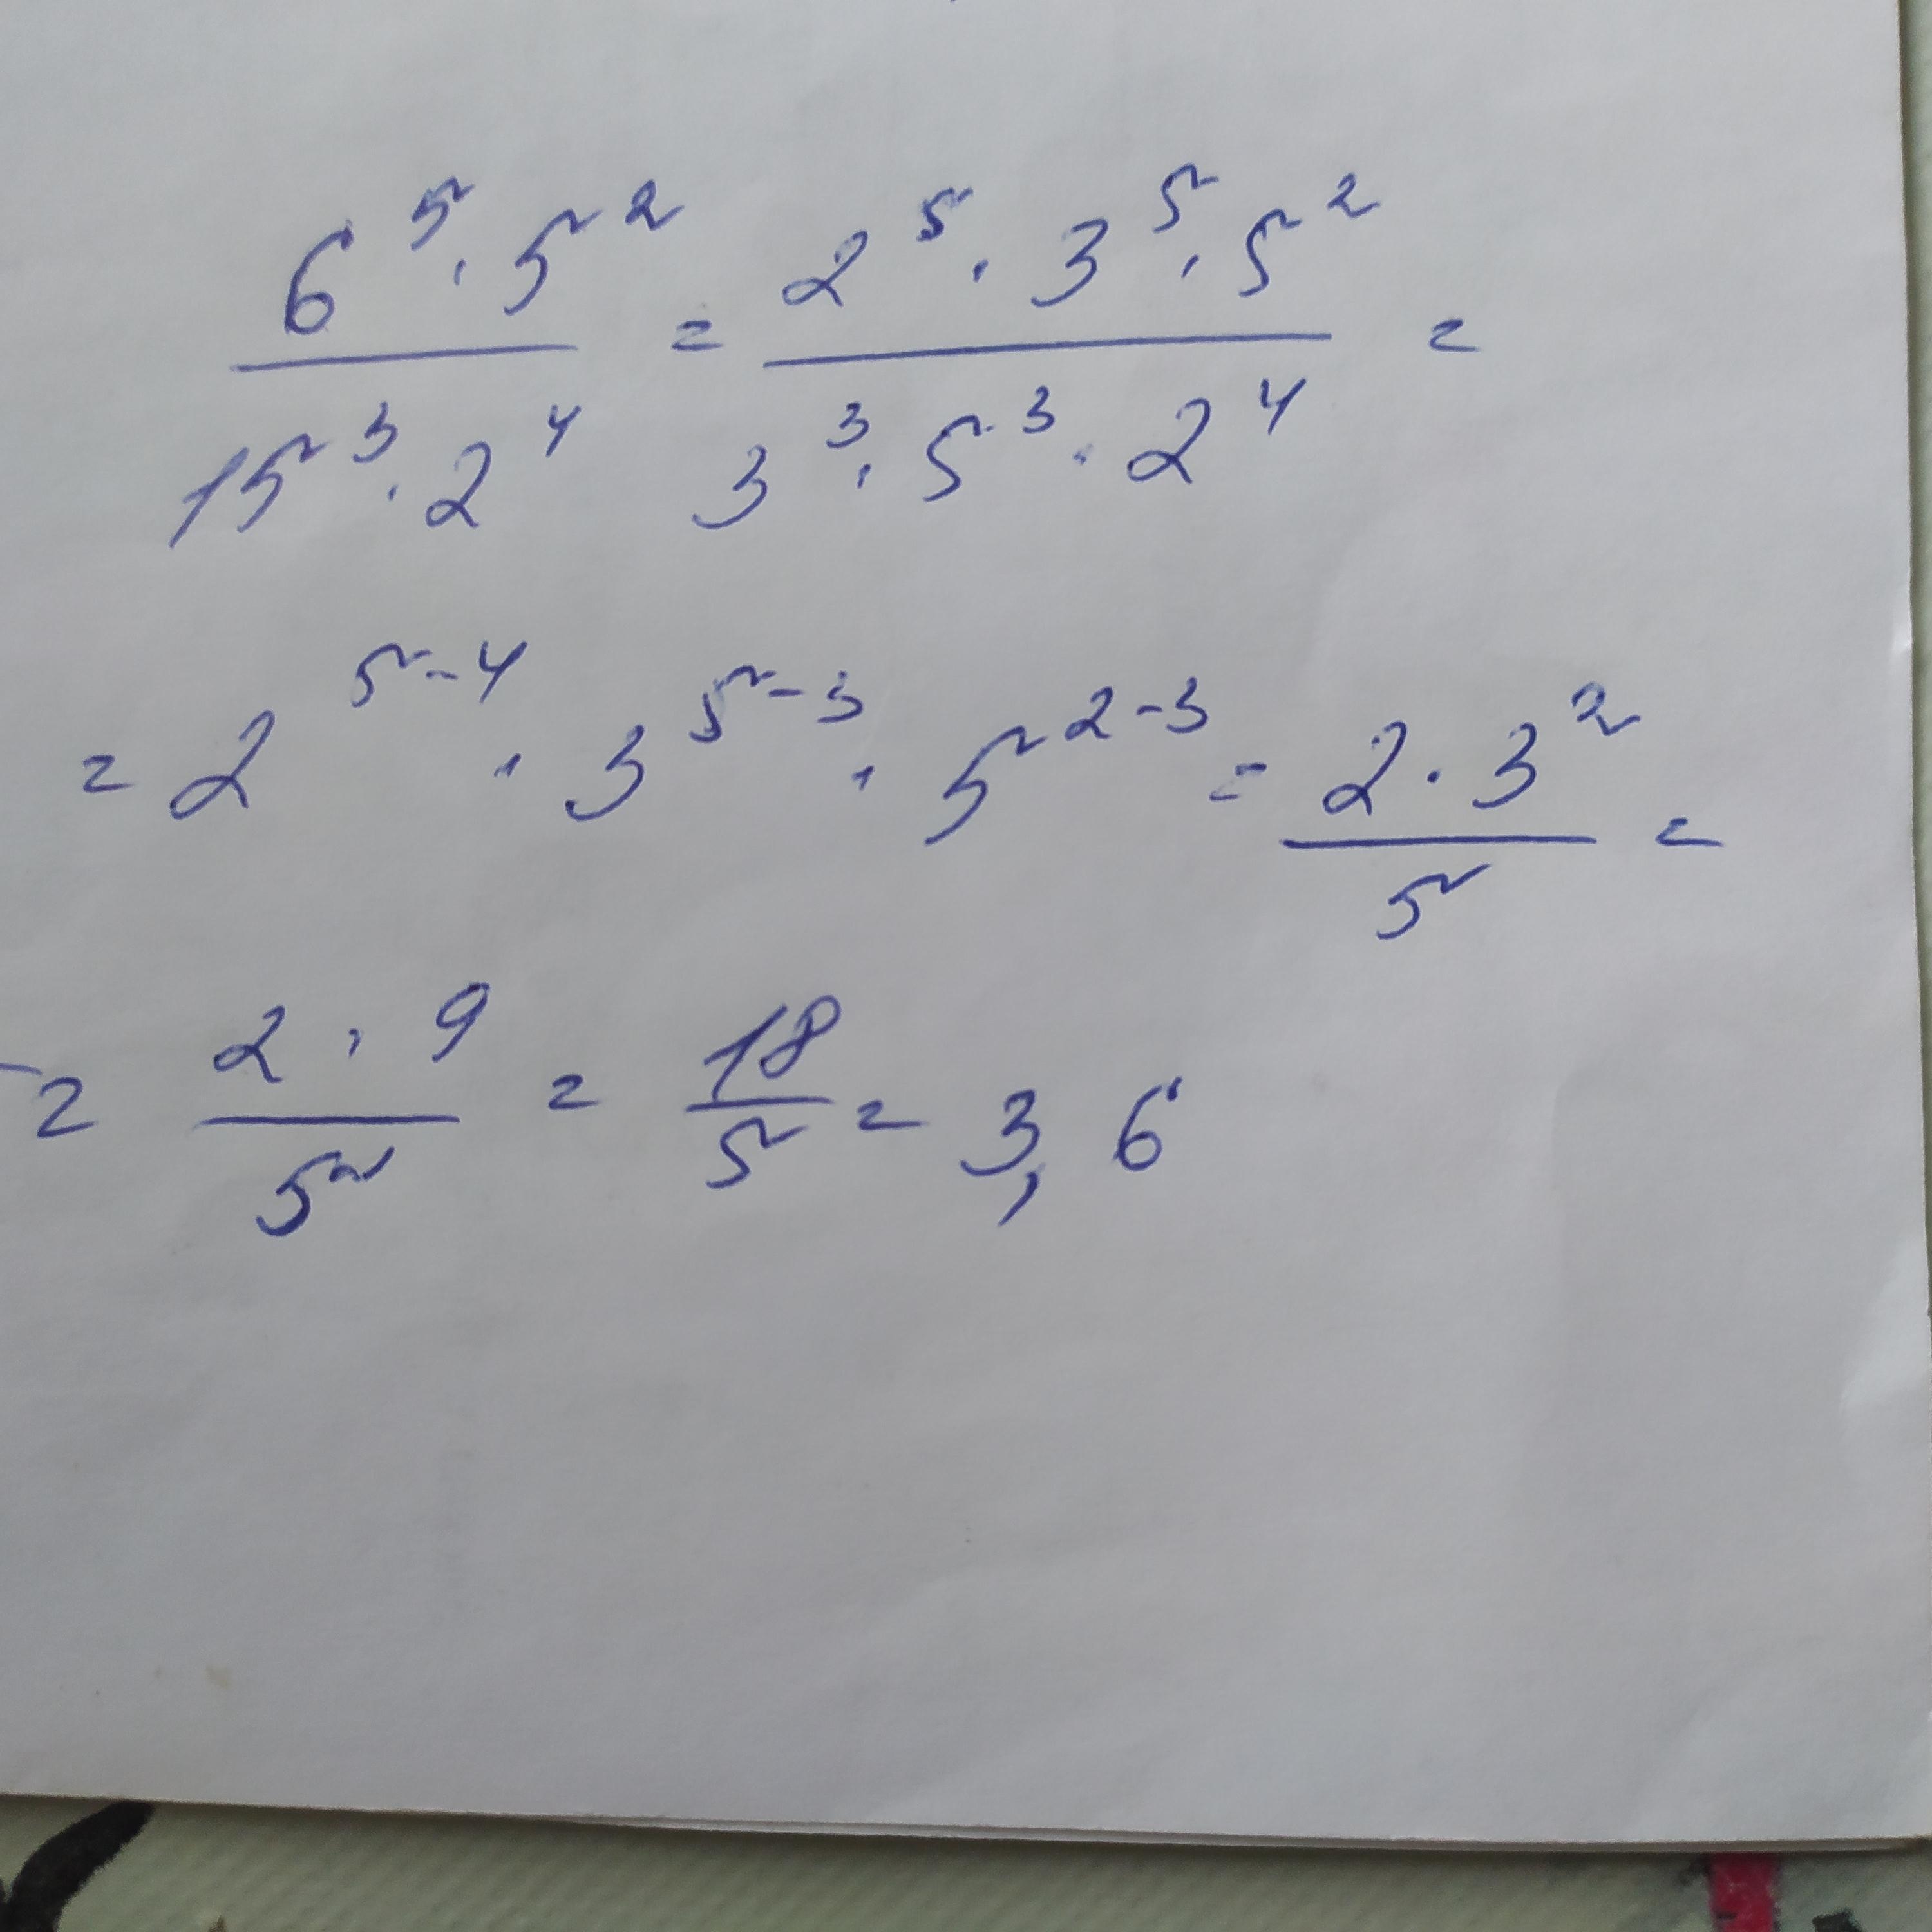 6⁵·5² / 15³·2⁴ = 2⁵·3⁵·5² / 3³·5³·2⁴ =
= 2⁵⁻⁴ · 3⁵⁻³ · 5²⁻³ = 2·3² / 5 =
= 2·9 / 5 = 18 / 5 = 3,6